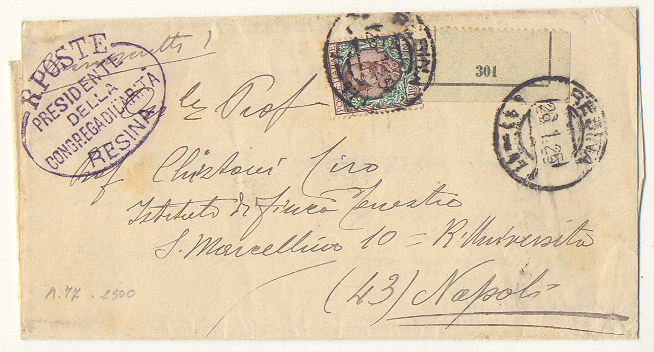 R POSTE
PRESIDENTE
DELLA
CONGREGA DI CARITÀ
RESINA
RESINA
301
RESINA
28.1.25
Prof
Prof Chistoni Ciro
Istituto di Fisica Terrestre
S. Marcellino 10 = R. Università
(43) Napoli
n. 77 . 2500